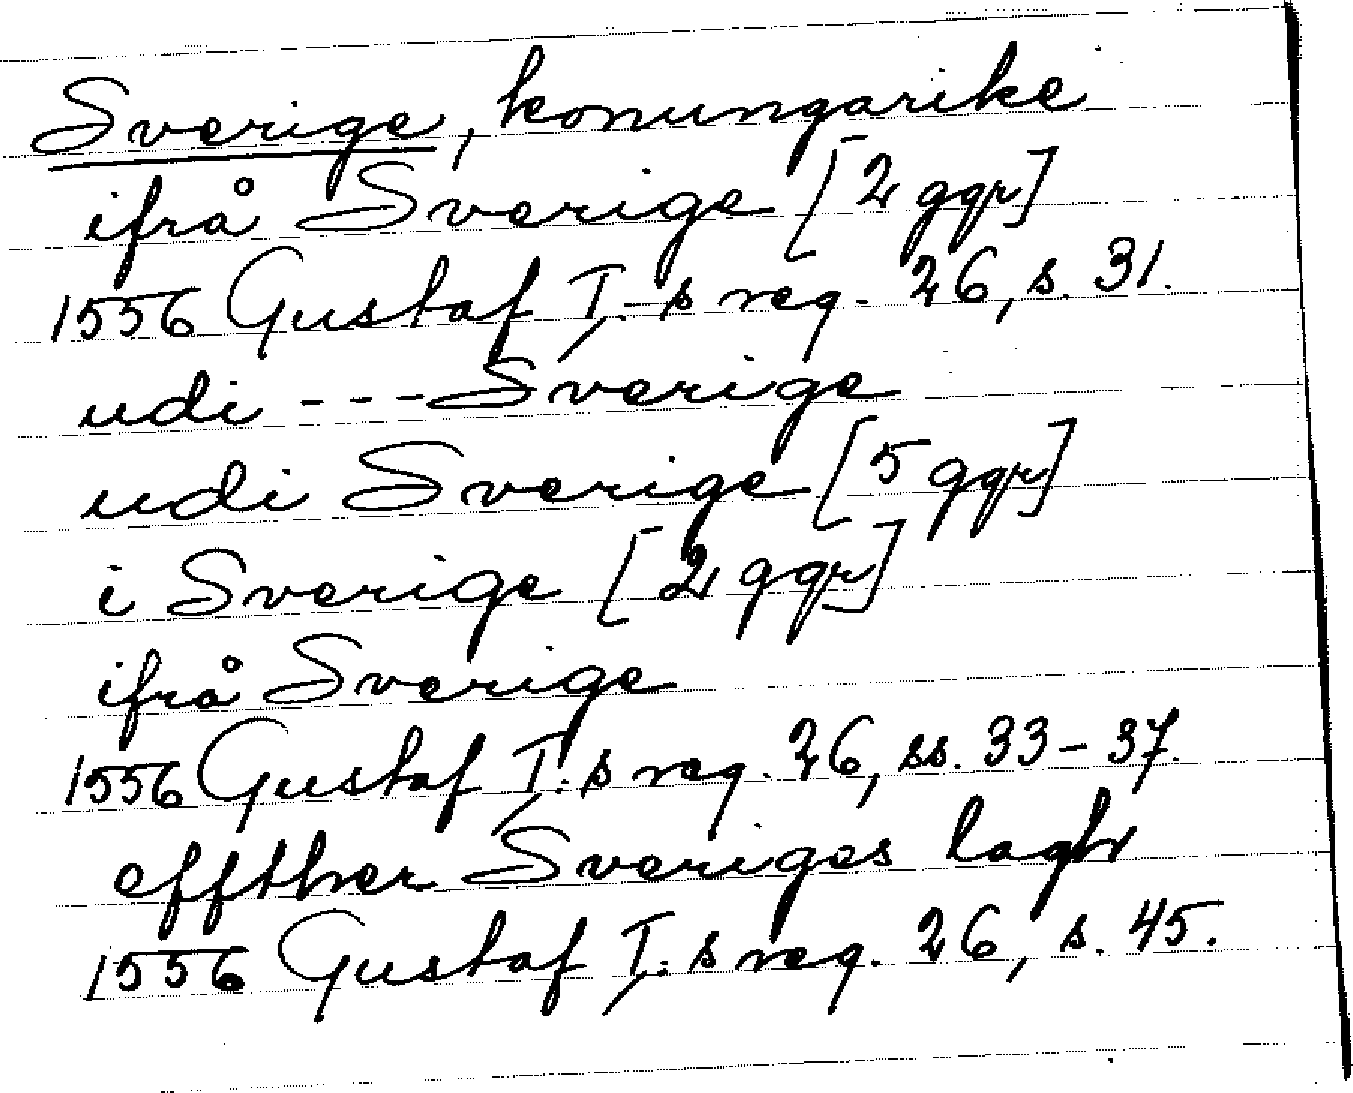 Sverige, konungarike
ifrå Sverige [2 ggr]
1556 Gustaf I:s reg. 26, s. 31.
udi --- Sverige
udi Sverige [5 ggr]
i Sverige [2 ggr]
ifrå Sverige
1556 Gustaf I:s reg. 26, ss. 33-37.
effther Sveriges lagh
1556 Gustaf I:s reg. 26, s. 45.